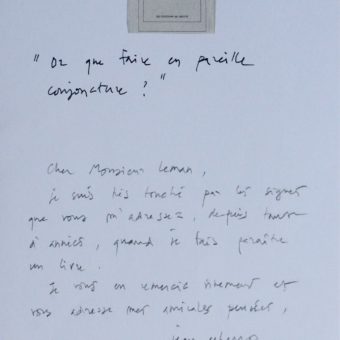 LES ÉDITIONS DE MINUIT
" Or que faire en pareille
conjoncture ? "
Cher Monsieur Leman,
je suis très touché par les signes
que vous m'adressez, depuis
d'années, quand je fais paraître
un livre.
Je vous en remercie vivement et
vous adresse mes amicales pensées,